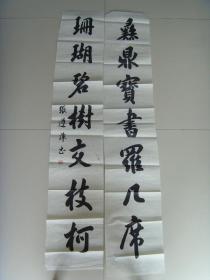 彝鼎寶書羅几席
珊瑚碧樹交枝柯